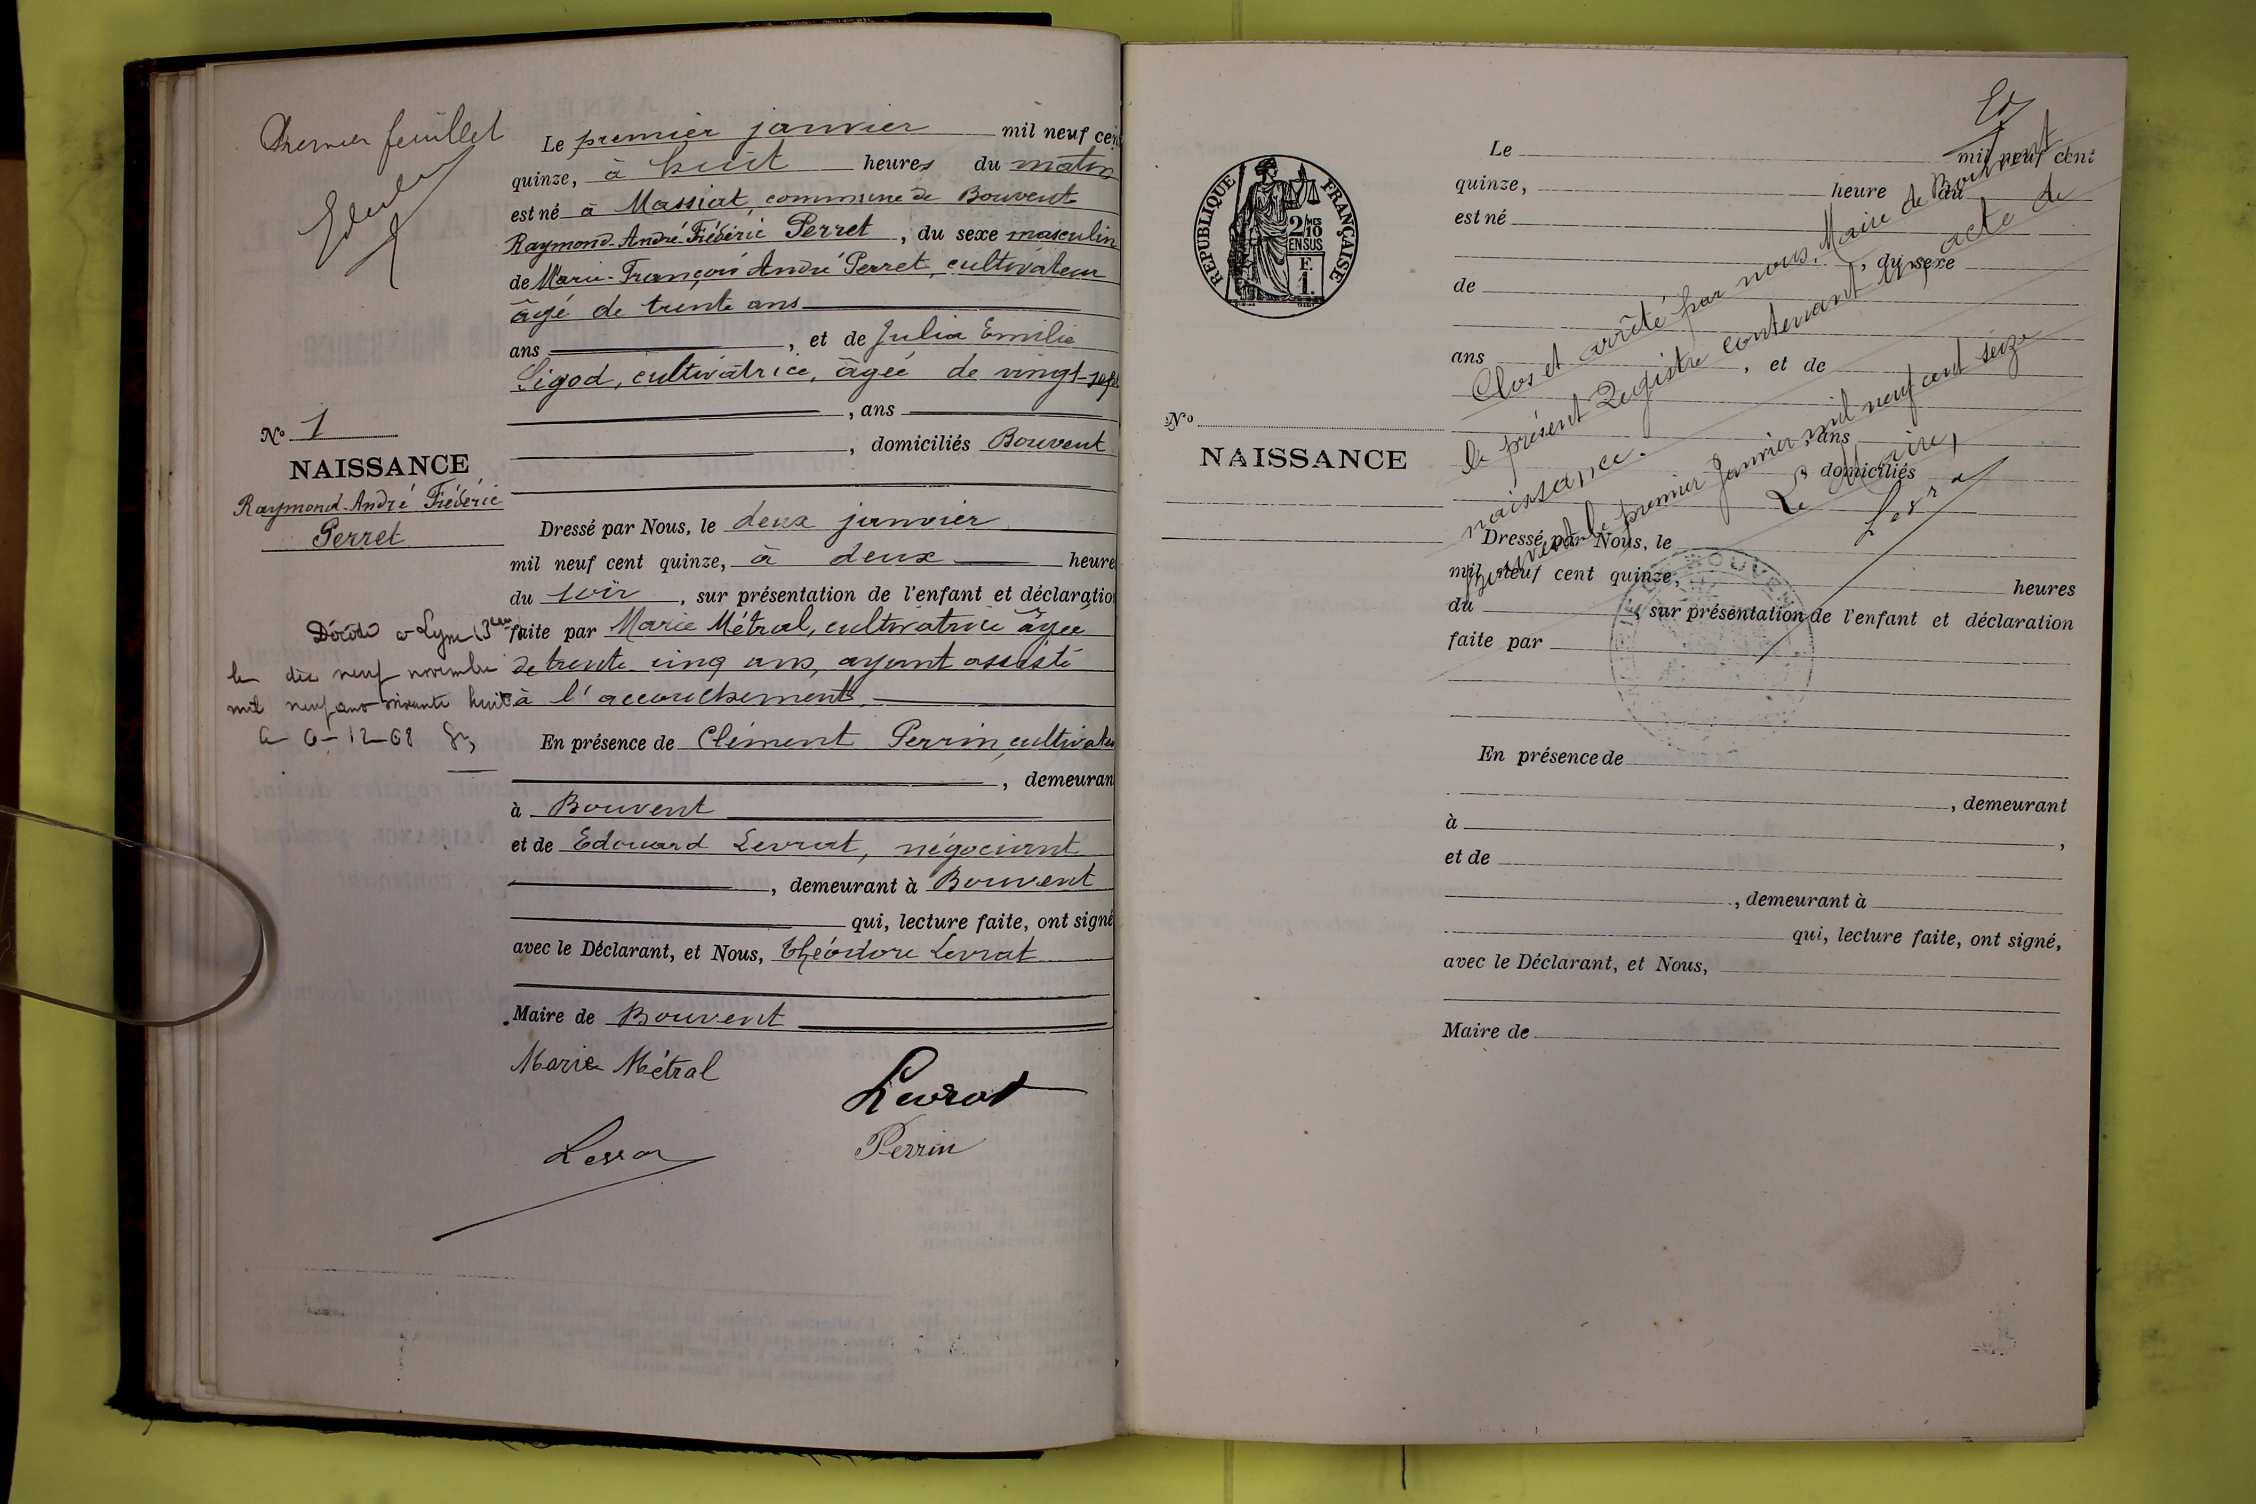 Premier feuillet
Le premier janvier mil neuf cent
quinze, à huit heures du matin
est né à Massiat, commune de Bouvent
Raymond-André-Frédéric Perret, du sexe masculin
de Marie-François André Perret, cultivateur
âgé de trente ans
ans , et de Julia Emilie
Sigod, cultivatrice, âgée de vingt-sept
, ans
, domiciliés Bouvent
No 1
NAISSANCE
Raymond-André Frédéric
Perret
Dressé par Nous, le deux janvier
mil neuf cent quinze, à deux heure
du soir , sur présentation de l'enfant et déclaration
faite par Marie Métral, cultivatrice âgée
de trente cinq ans, ayant assisté
à l'accouchement.
Décédé à Lyon (3ème
le dix neuf novembre
mil neuf cent soixante huit
6-12-68
En présence de Clément Perrin, cultivateu
, demeuran
à Bouvent
et de Edouard Levrat, négociant
, demeurant à Bouvent
qui, lecture faite, ont signé
avec le Déclarant, et Nous, Théodore Levrat
Maire de Bouvent
Marie Métral
Levrat
Perrin
RÉPUBLIQUE FRANÇAISE
2/10
EN SUS
F.
1.
No
NAISSANCE
Le mil neuf cent
quinze, heure du
est né
, du sexe
de
ans , et de
, ans
, domiciliés
Dressé par Nous, le
mil neuf cent quinze, heures
du , sur présentation de l'enfant et déclaration
faite par
En présence de
, demeurant
à ,
et de
, demeurant à
qui, lecture faite, ont signé,
avec le Déclarant, et Nous,
Maire de
Clos et arrêté par nous, Maire de Bouvent
le présent Registre contenant un acte de
naissance.
Bouvent le premier Janvier mil neuf cent seize
Le Maire,